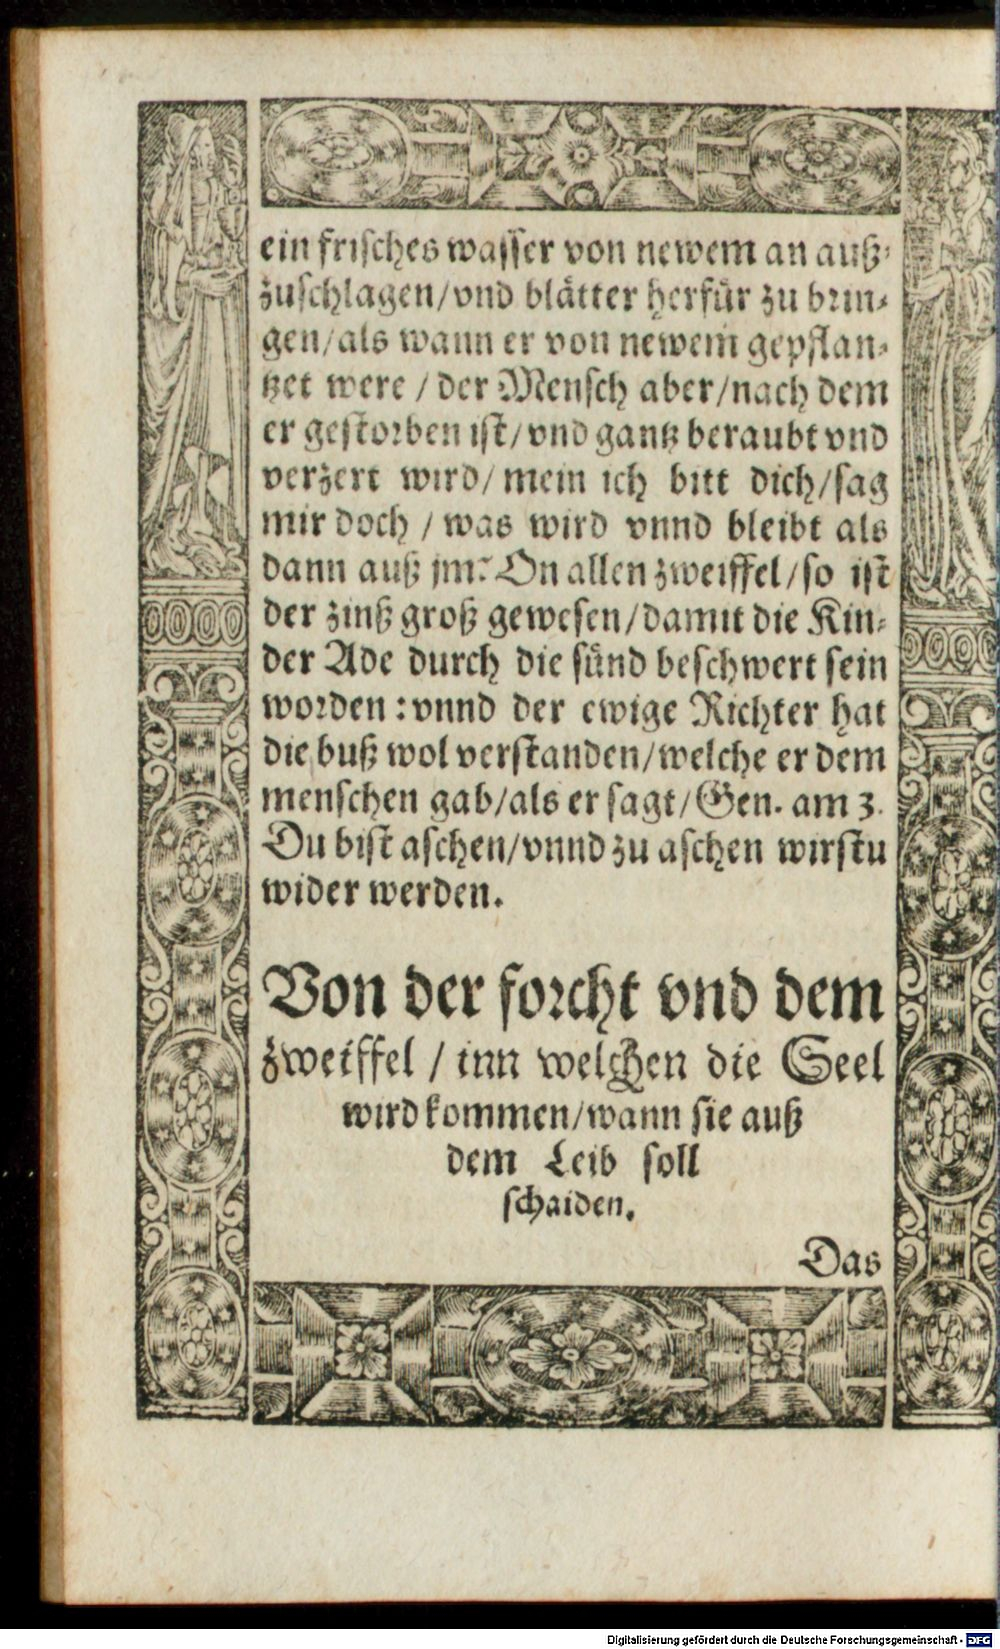 ein frisches wasser von newem an auß-
zuschlagen/vnd blätter herfür zu brin-
gen/als wann er von newem gepflan-
tzet were / der Mensch aber/nach dem
er gestorben ist/vnd gantz beraubt vnd
verzert wird/ mein ich bitt dich/sag
mir doch / was wird vnnd bleibt als
dann auß jm? On allen zweiffel/so ist
der zinß groß gewesen/damit die Kin-
der Ade durch die sünd beschwert sein
worden : vnnd der ewige Richter hat
die buß wol verstanden/welche er dem
menschen gab/als er sagt/Gen. am 3.
Du bist aschen/vnnd zu aschen wirstu
wider werden.
Von der forcht vnd dem
zweiffel / inn welchen die Seel
wird kommen/wann sie auß
dem Leib soll
schaiden.
Das
Digitalisierung gefördert durch die Deutsche Forschungsgemeinschaft - DFG